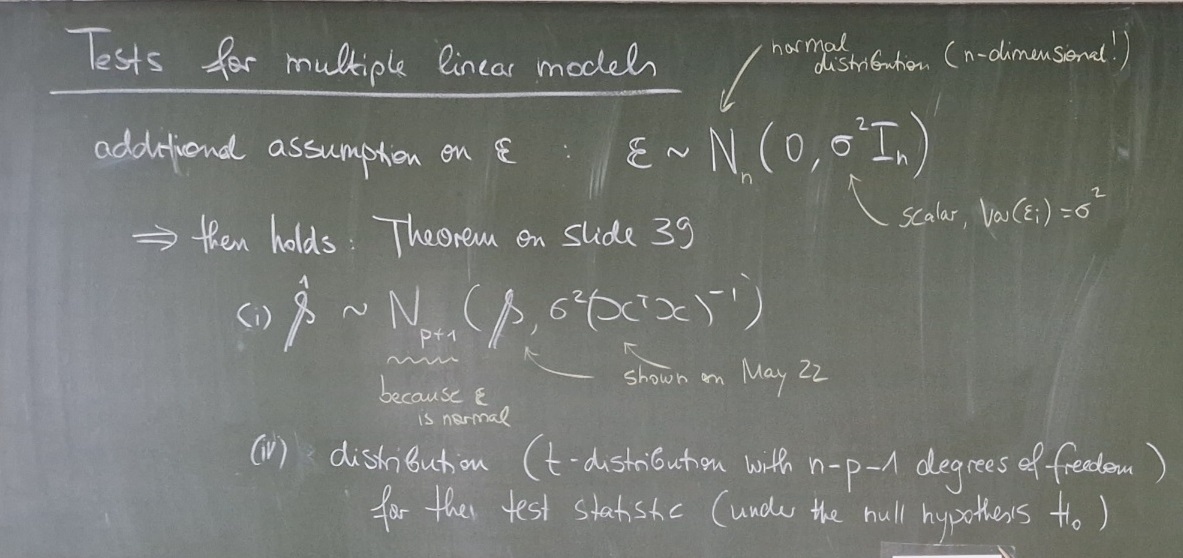 Tests for multiple linear models
normal
distribution (n-dimensional!)
additional assumption on ε : ε ~ Nₙ(0, σ²Iₙ)
scalar, Var(εᵢ) = σ²
⇒ then holds: Theorem on slide 39
(i) β̂ ~ Nₚ₊₁(β, σ²(XᵀX)⁻¹)
shown on May 22
because ε
is normal
(iv) distribution (t-distribution with n-p-1 degrees of freedom)
for the test statistic (under the null hypothesis H₀)